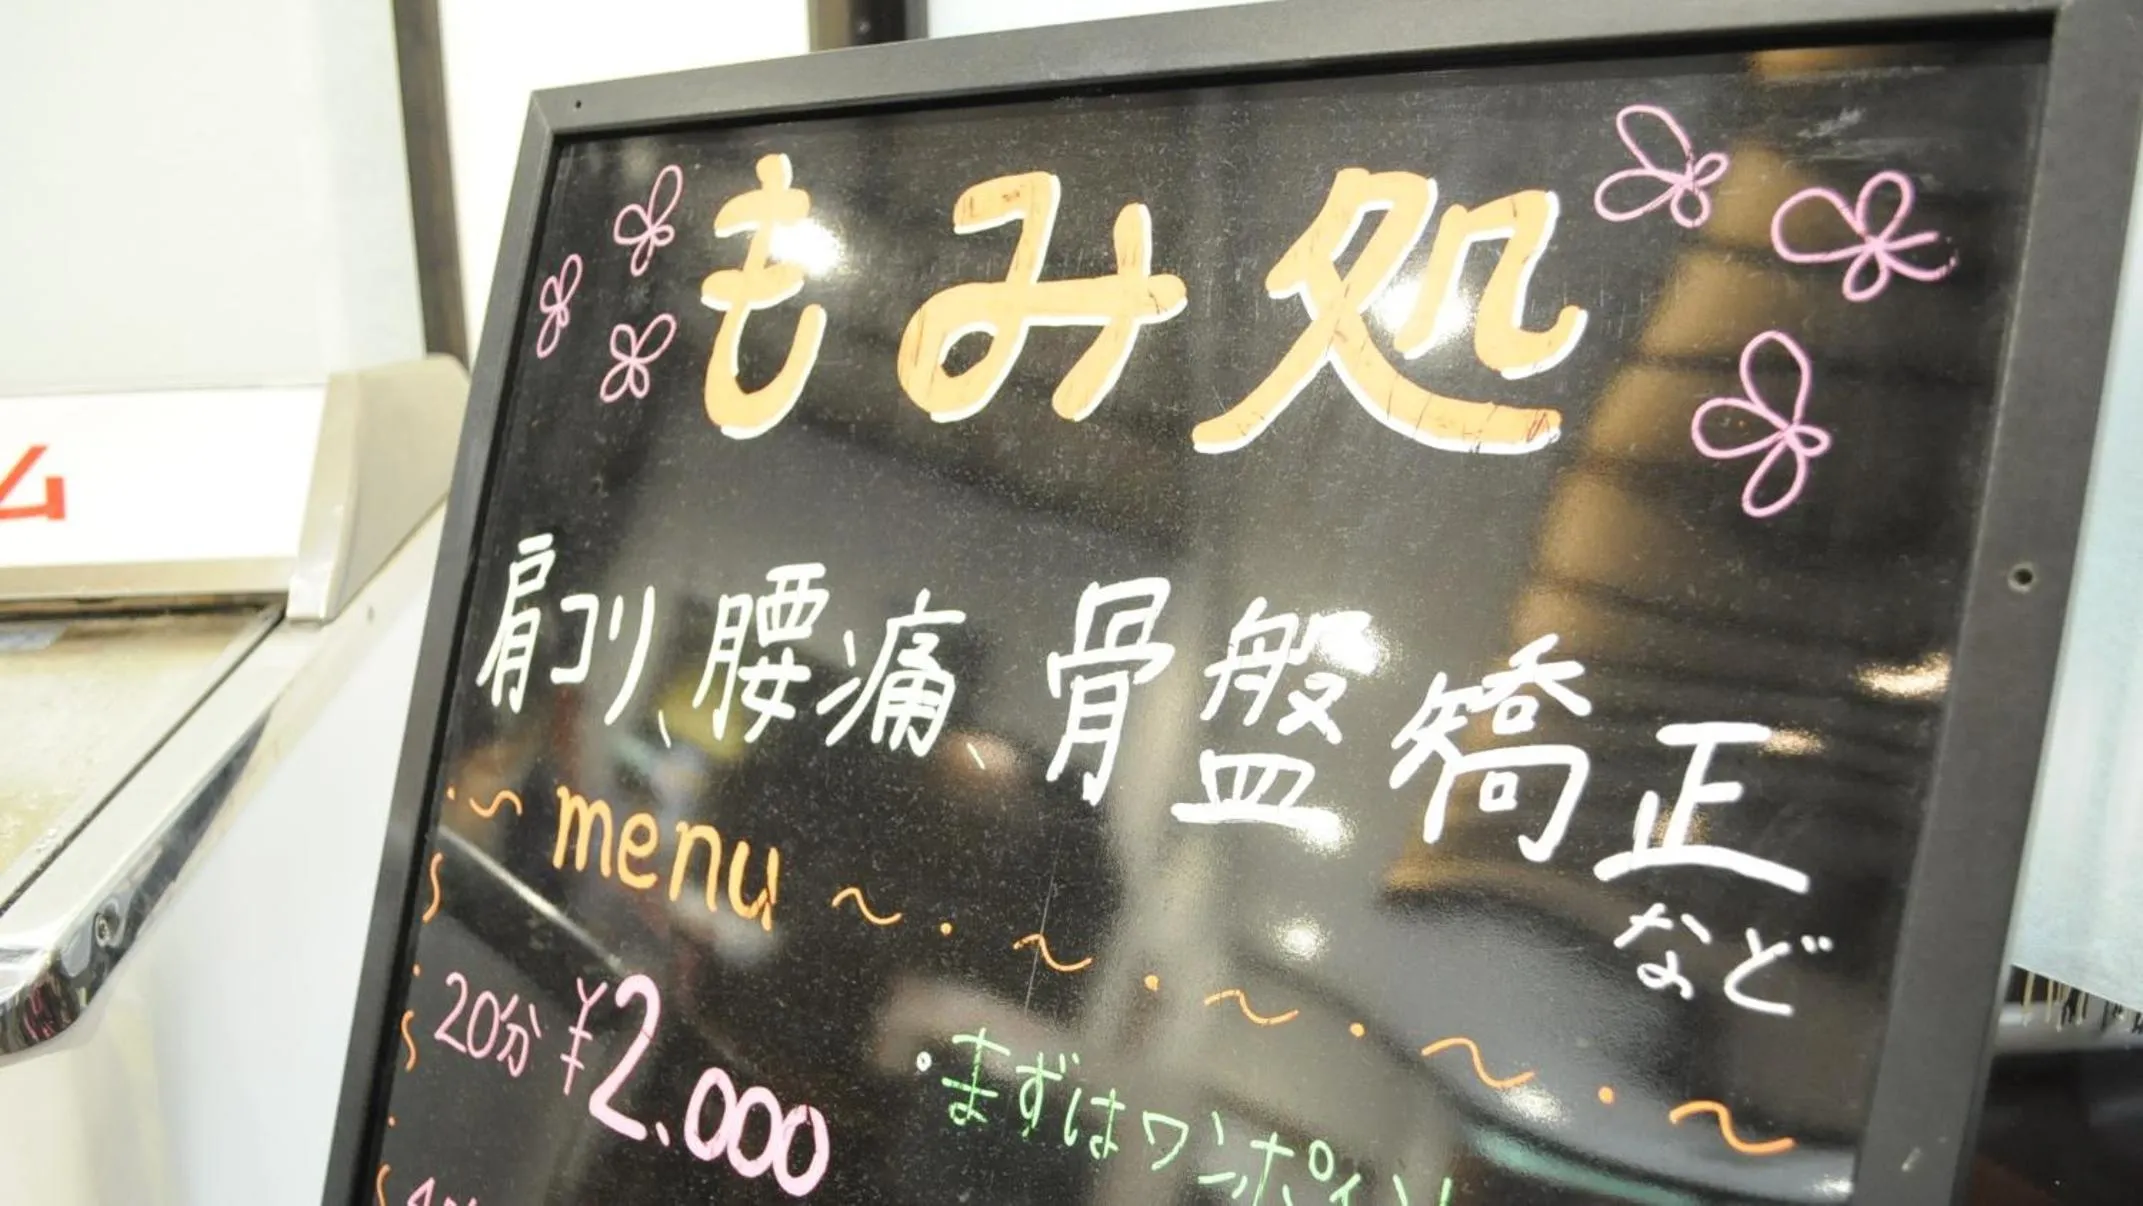 もみ処
肩コリ、腰痛、骨盤矯正
など
menu
20分 ¥2,000
・まずはワンポイント
ム